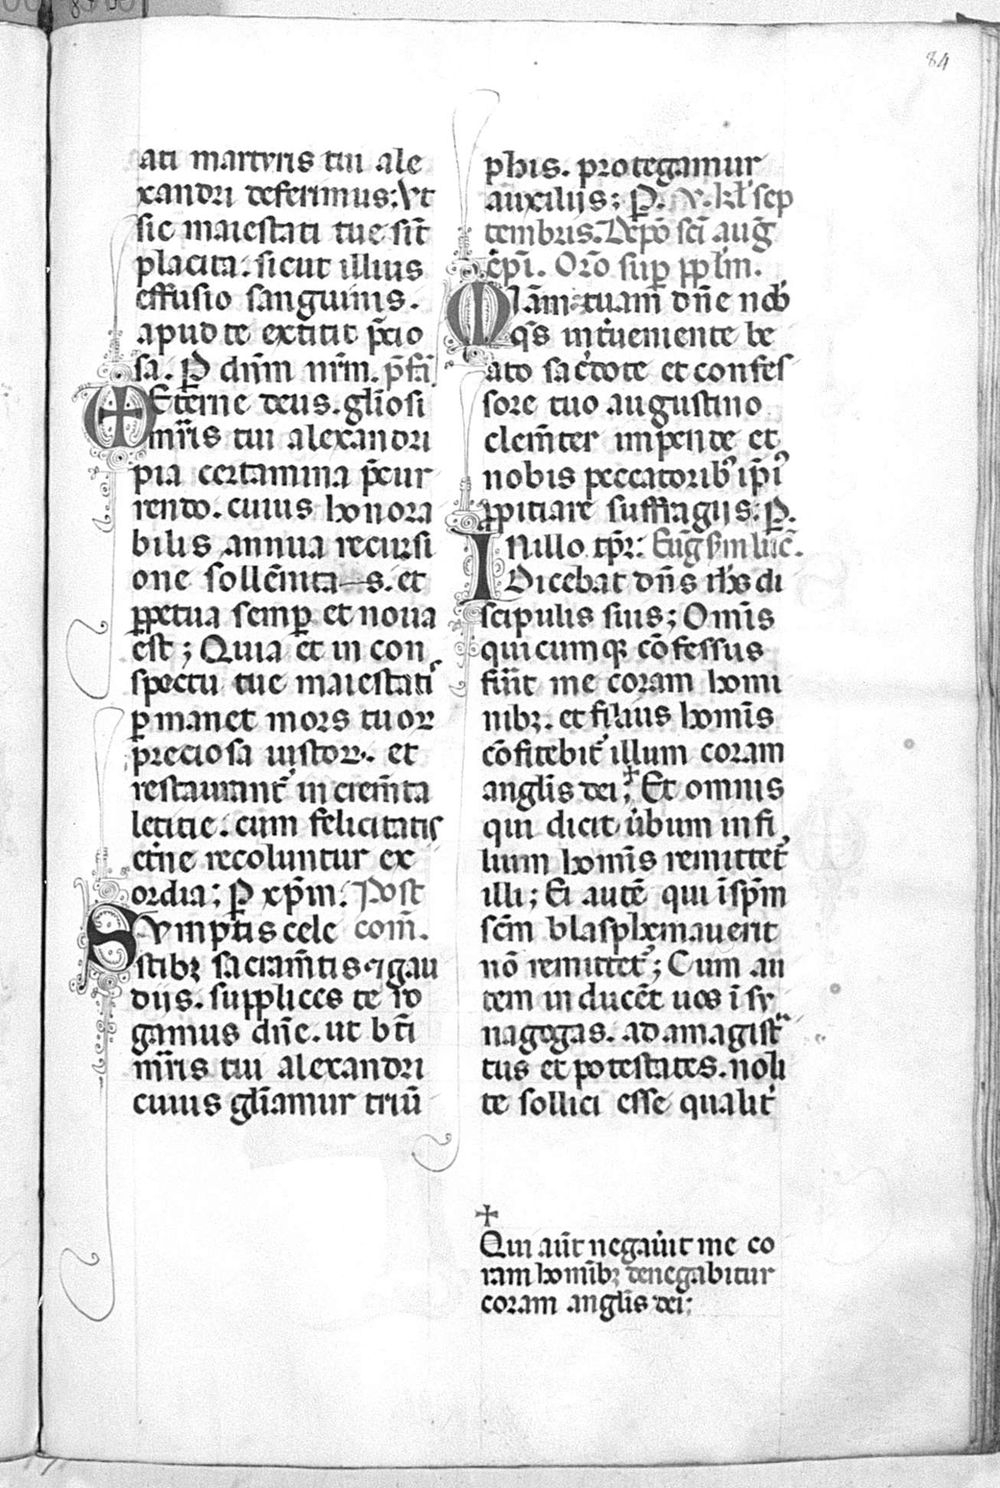 84
ati martyris tui ale
xandri deferimus: Vt
sic maiestati tue sint̄
placita. sicut illius
effusio sanguinis.
apud te extitit p̄cio
sa. P̱ dn̄m nr̄m. p̄fā
Eterne deus. gl̄iosi
mr̄is tui alexandri
pia certamina p̄cur
rendo. cuius honora
bilis annua recursi
one sollēnitas. et
ꝑpetua semꝑ et noua
est; Quia et in con
spectu tue maiestatis
ꝑmanet mors tuoꝝ
preciosa iustoꝝ. et
restaurant᷑ in crem̄ta
letitie. cum felicitatis
et̄ne recoluntur ex
ordia; ꝑ xp̄m. Post
Sumptis cele com̄.
stibꝫ sacram̄tis ⁊ gau
diis. supplices te ro
gamus dn̄e. ut bt̄i
mr̄is tui alexandri
cuius gl̄iamur triū
phis. protegamur
auxiliis; P. V. kl̄ sep
tembris. Depō sc̄i auḡ
ep̄i. Or̄o sup̱ pp̄lm.
Miām tuam dn̄e nob
qs̄ int̄ueniente be
ato sac̄dote et confes
sore tuo augustino
clem̄ter impende et
nobis peccatoribꝰ ip̄iꝰ
ꝓpitiare suffragiis: P.
In illo tp̄r: Euḡ sm̄ luc̄.
Dicebat dn̄s ih̄s di
scipulis suis; Omīs
quicumqꝫ cōfessus
fūit me coram homi
nibꝫ. et filius homīs
cōfitebit᷑ illum coram
angl̄is dei; ☩ Et omnis
qui dicit ūbum in fi
lium homīs remittet᷑
illi; Ei autē qui ī sp̄m
sc̄m blasphemauerit
nō remittet᷑; Cum au
tem inducēt uos ī sy
nagogas. ad magistra
tus et potestates. noli
te solliciti esse qualit᷑
☩
Qui aūt negaūit me co
ram homībꝫ denegabitur
coram angl̄is dei;